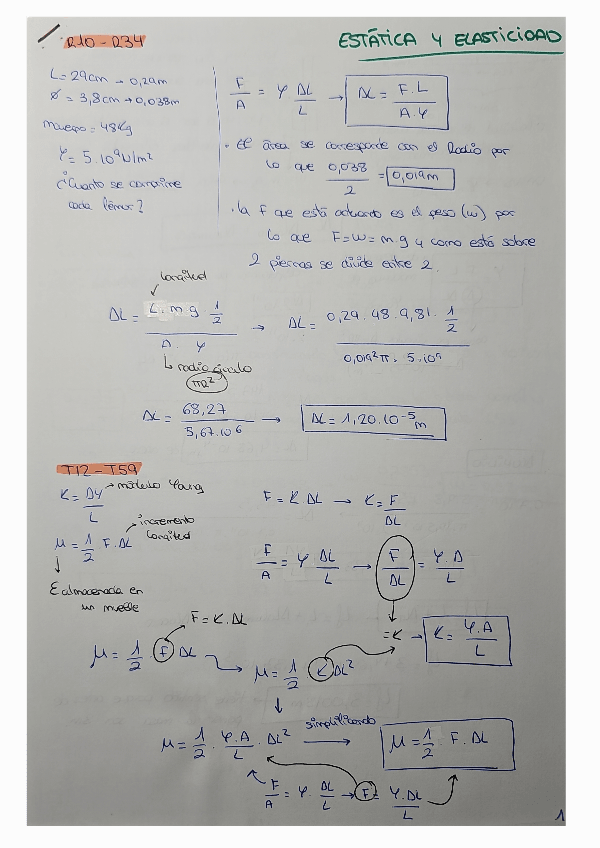 R10 - R34
ESTÁTICA Y ELASTICIDAD
L = 29cm → 0,29m
Ø = 3,8cm → 0,038m
mcuerpo = 48Kg
φ = 5·10⁹ N/m²
¿Cuanto se comprime
cada fémur?
F/A = φ ΔL/L → ΔL = F·L/A·φ
· El área se corresponde con el Radio por
lo que 0,038/2 = 0,019m
· La F que está actuando es el peso (w) por
lo que F=w=m·g y como está sobre
2 piernas se divide entre 2.
longitud
ΔL = L·m·g·1/2 / A·φ → ΔL = 0,29·48·9,81·1/2 / 0,019²π·5·10⁹
radio circulo
πR²
ΔL = 68,27/5,67·10⁶ → ΔL = 1,20·10⁻⁵ m
T12 - T59
K = AY/L → módulo Young
F = K·ΔL → K = F/ΔL
μ = 1/2 F·ΔL
incremento
longitud
F/A = φ ΔL/L → F/ΔL = φ·A/L
E almacenada en
un muelle
= K → K = φ·A/L
F = K·ΔL
μ = 1/2 · F ΔL
μ = 1/2 · K ΔL²
μ = 1/2 · φ·A/L · ΔL² simplificando → μ = 1/2 · F·ΔL
F/A = φ·ΔL/L → F = φ·ΔL/L
1